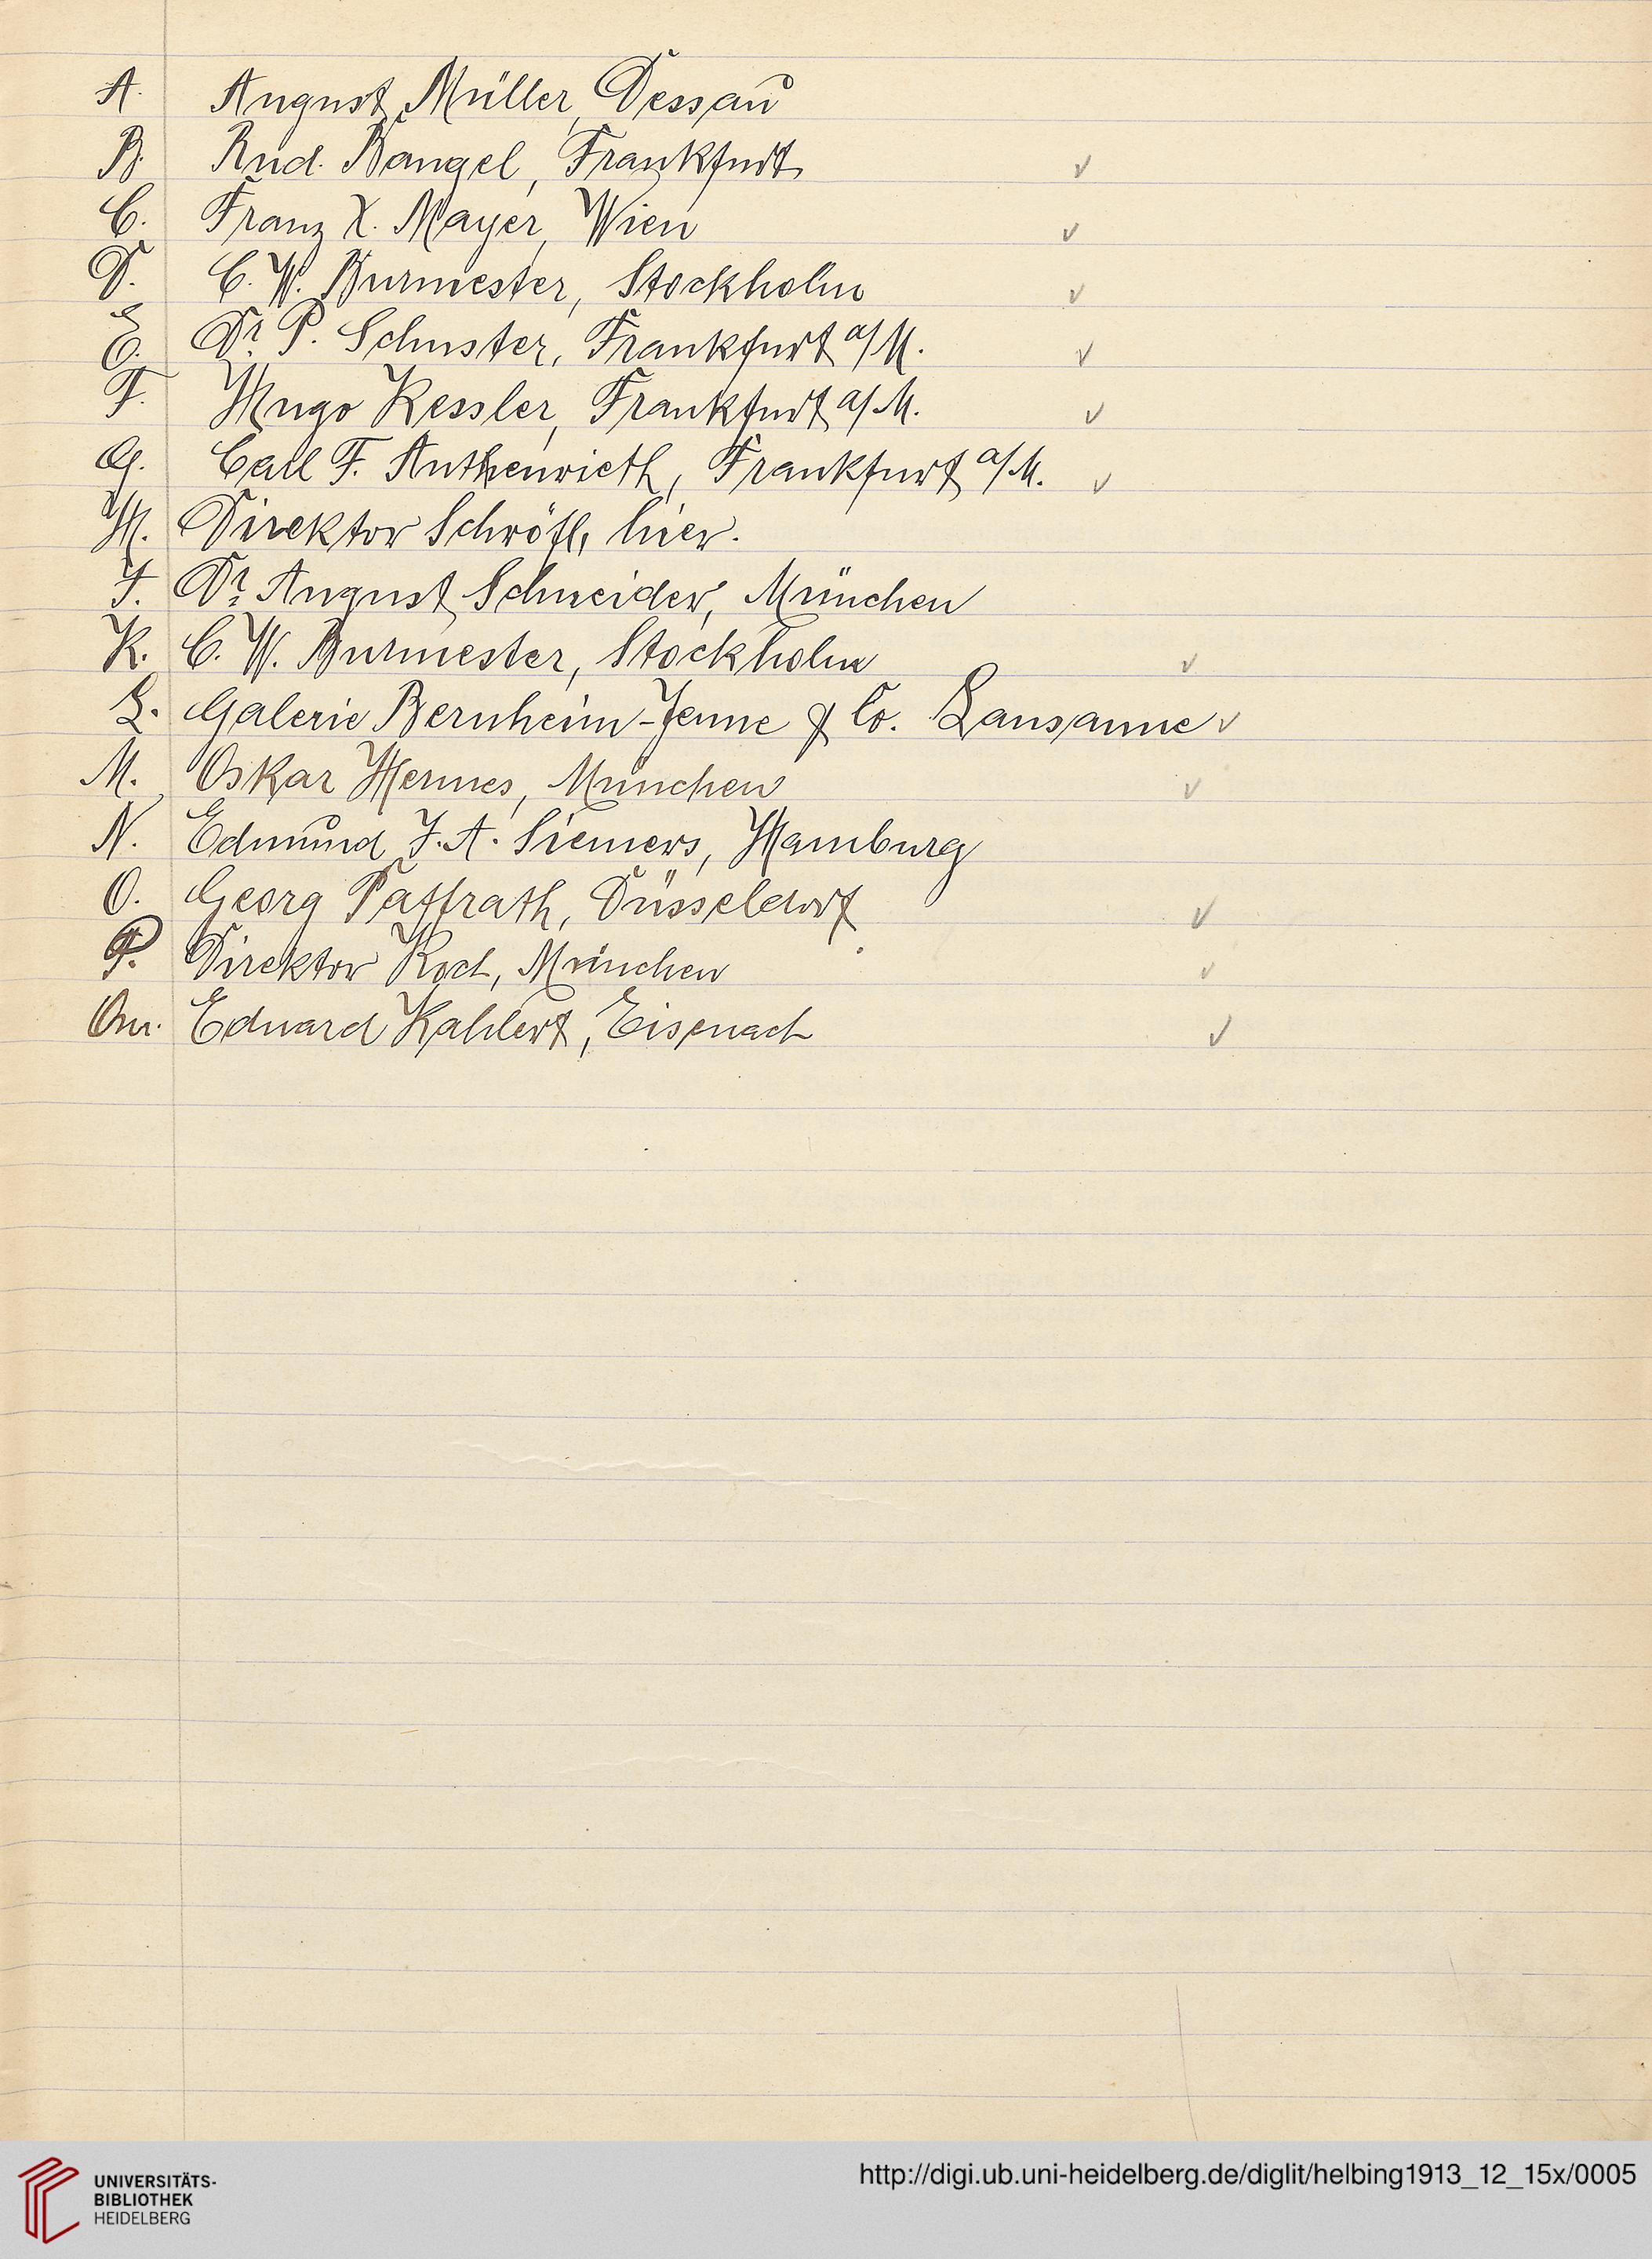 A. August Müller, Dessau
B. Rud. Bangel, Frankfurt
C. Franz X. Mayer, Wien
D. C. W. Burmester, Stockholm
E. Dr. P. Schuster, Frankfurt a/M.
F. Hugo Kessler, Frankfurt a/M.
G. Carl F. Authenrieth, Frankfurt a/M.
H. Direktor Schröfl, hier.
J. Dr. August Schneider, München
K. C. W. Burmester, Stockholm
L. Galerie Bernheim-Jeune & Co. Lausanne
M. Oskar Hermes, München
N. Edmund J. A. Siemers, Hamburg
O. Georg Paffrath, Düsseldorf
P. Direktor Koch, München
Qu. Eduard Kahlert, Eisenach
UNIVERSITÄTS-
BIBLIOTHEK
HEIDELBERG
http://digi.ub.uni-heidelberg.de/diglit/helbing1913_12_15x/0005